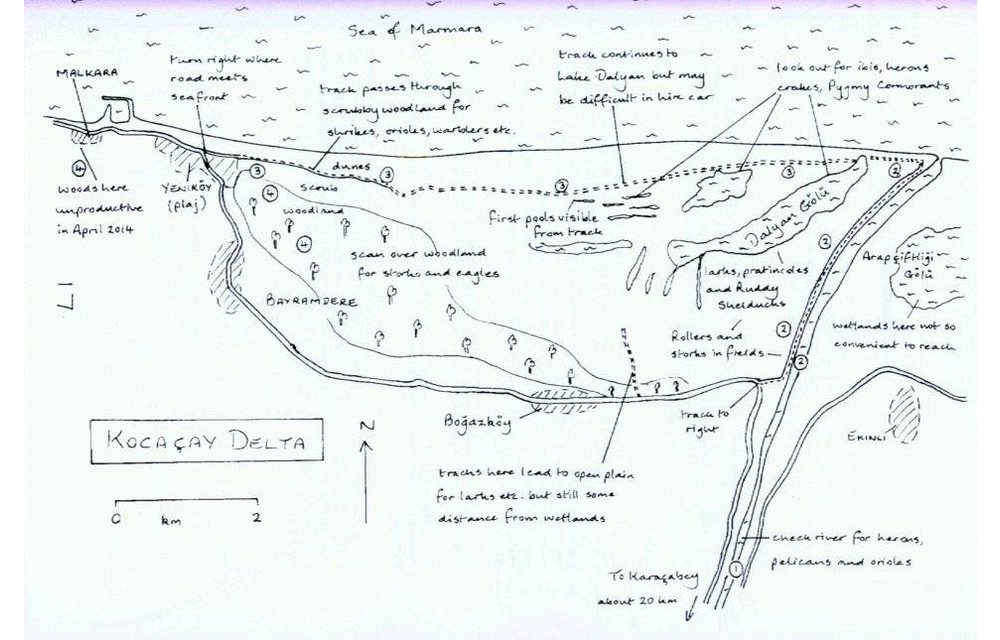 Sea of Marmara
MALKARA
turn right where
road meets
seafront
track passes through
scrubby woodland for
shrikes, orioles, warblers etc.
track continues to
Lake Dalyan but may
be difficult in hire car
look out for ibis, herons
crakes, Pygmy Cormorants
dunes
3
3
3
3
2
4
woods here
unproductive
in April 2014
YENIKÖY
(plaj)
3
scrub
4
woodland
4
first pools visible
from track
Dalyan Gölü
2
scan over woodland
for storks and eagles
larks, pratincoles
and Ruddy
Shelducks
Arapçiftliği
Gölü
BAYRAMDERE
wetlands here not so
convenient to reach
Rollers and
storks in fields
2
2
track to
right
Boğazköy
EKINLI
KOCAÇAY DELTA
N
0 km 2
tracks here lead to open plain
for larks etc. but still some
distance from wetlands
check river for herons,
pelicans and orioles
1
To Karaçabey
about 20 km